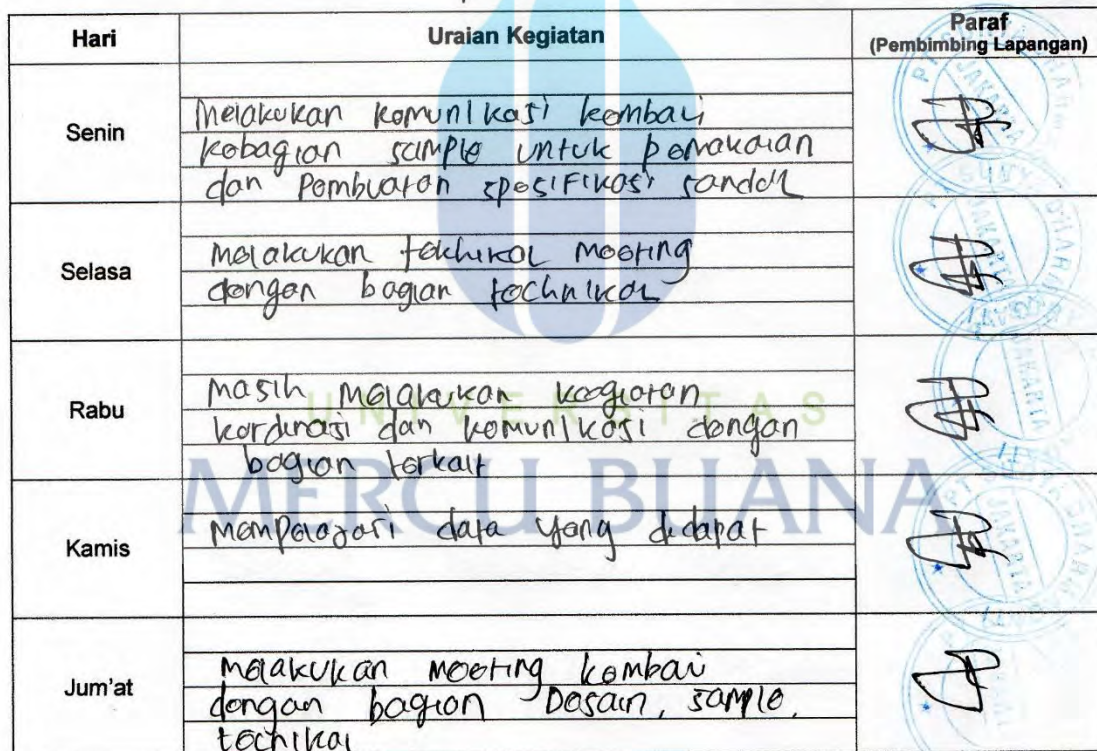 Hari Uraian Kegiatan Paraf
(Pembimbing Lapangan)
Senin
Melakukan komunikasi kembali
kebagian sample untuk pemakaian
dan Pembuatan spesifikasi sandal
Selasa
melakukan tekhnikal meeting
dengan bagian technikal
Rabu
masih melakukan keegiatan
kordinasi dan komunikasi dengan
bagian terkait
Kamis
mempelajari data yang didapat
Jum'at
melakukan meeting kembali
dengan bagian Desain, sample,
technikal
UNIVERSITAS
MERCU BUANA
JAKARTA
JAKARTA
JAKARTA
JAKARTA